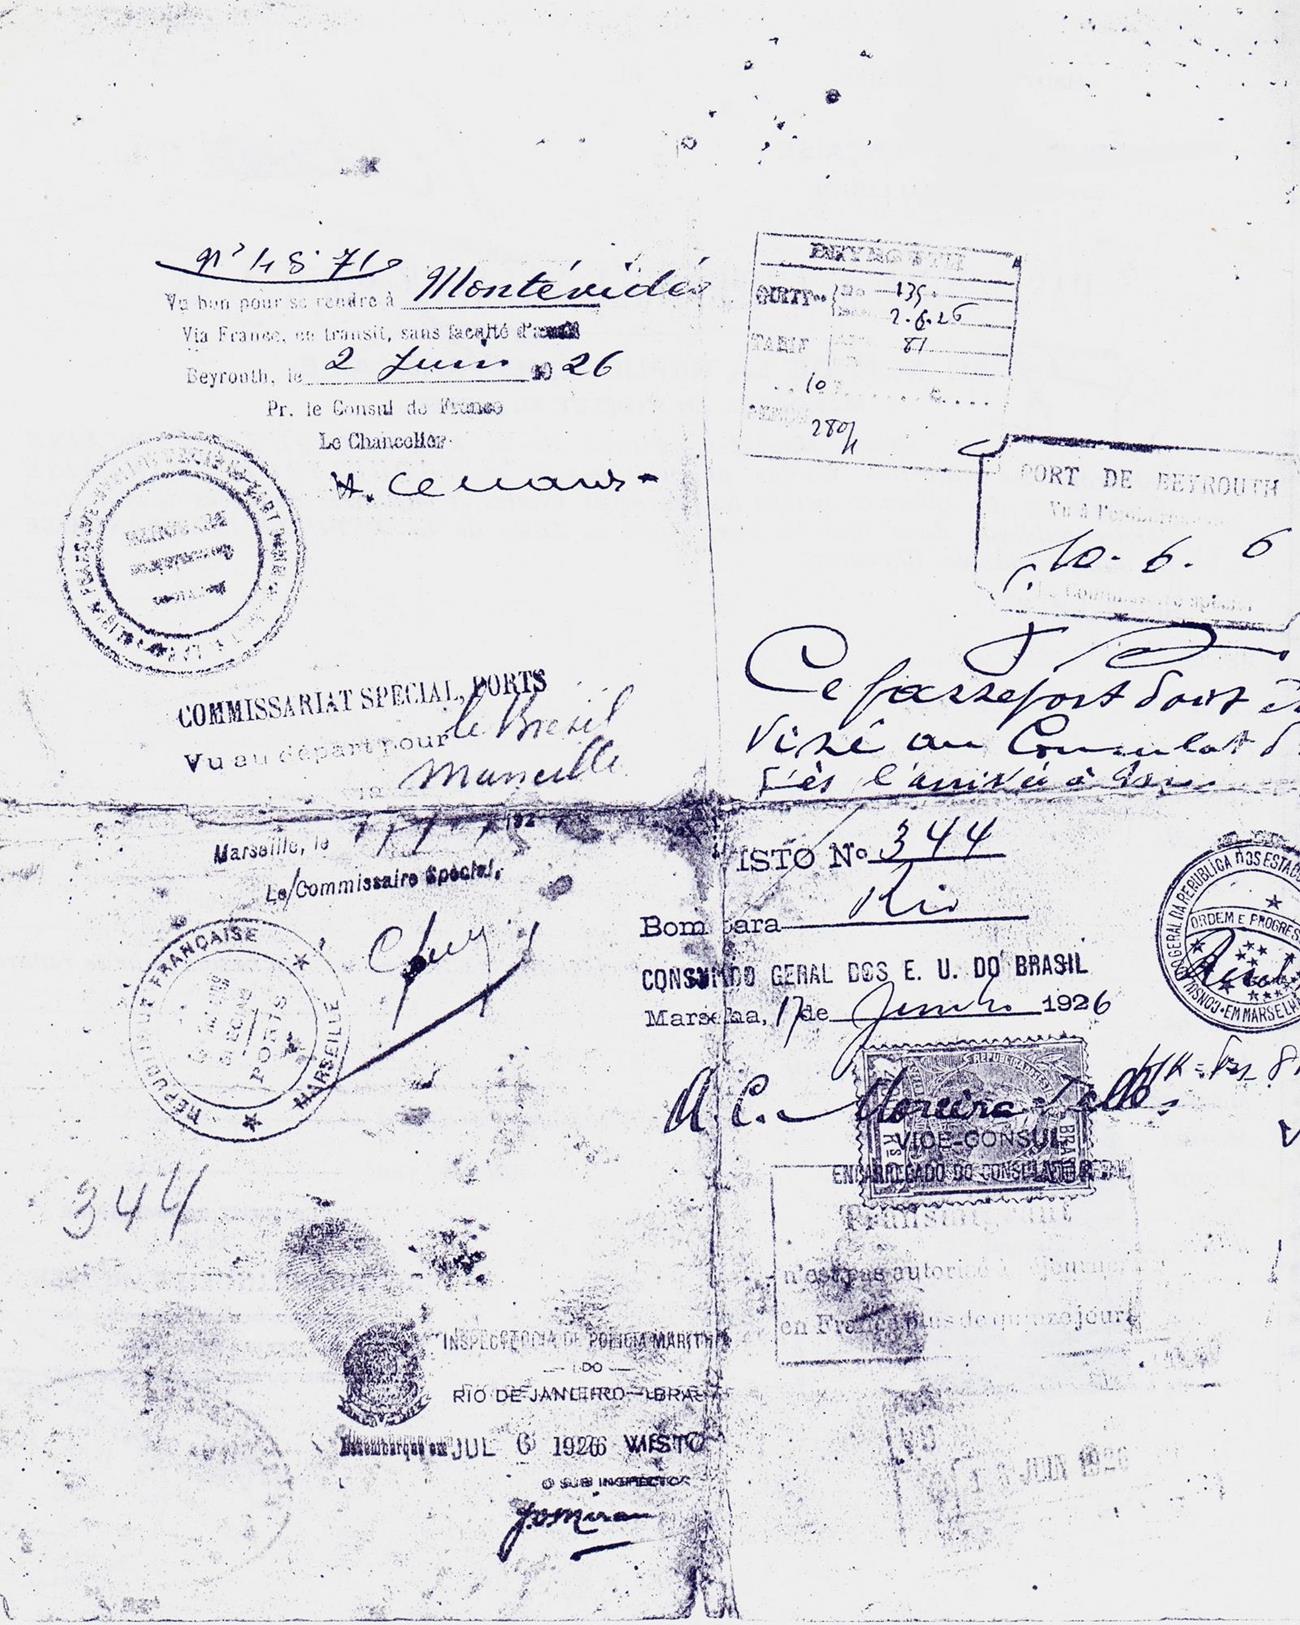 Nº 4871
Vu bon pour se rendre à Montévidéo
Via France, en transit, sans faculté d'
Beyrouth, le 2 Juin 1926
Pr. le Consul de France
Le Chancelier
BEYROUTH
QUITT.. No 135
2.6.26
TARIF 81
10
280
PORT DE BEYROUTH
Vu à l'embarquement
10. 6. 6
Le Commissaire Spécial
COMMISSARIAT SPECIAL, PORTS
Vu au départ pour le Brésil
Marseille
Marseille, le 192
Le Commissaire Spécial,
REPUBLIQUE FRANÇAISE
PORTS
MARSEILLE
Ce passeport doit
visé au Consulat
dès l'arrivée à
ISTO Nº 344
Bom para Rio
CONSULADO GERAL DOS E. U. DO BRASIL
Marselha, 17 de Junho 1926
CONSULADO GERAL DA REPUBLICA DOS ESTADOS
ORDEM E PROGRES
EM MARSELHA
A. C. Moreira
VICE-CONSUL
ENCARREGADO DO CONSULADO GERAL
344
n'est pas autorisé à séjourner
en France plus de quinze jours
INSPECTORIA DE POLICIA MARITIMA
DO
RIO DE JANEIRO - BRA
Desembarque em JUL 6 1926 VISTO
O SUB INSPECTOR
JUIN 1926